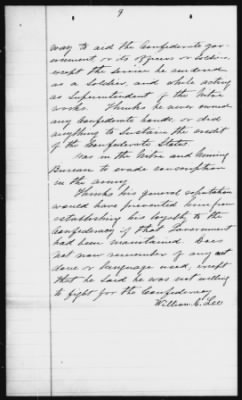 9
way to aid the Confederate gov-
ernment or its officers or soldiers
except the service he rendered
as a Soldier, and while acting
as Superintendent of the Nitre
works. Thinks he never owned
any Confederate bonds, or did
anything to sustain the credit
of the Confederate States.
Was in the Nitre and Mining
Bureau to evade conscription
in the army.
Thinks his general reputation
would have prevented him from
establishing his loyalty to the
Confederacy if that Government
had been maintained. Does
not now remember of any act
done or language used, except
that he said he was not willing
to fight for the Confederacy
William C. Lee